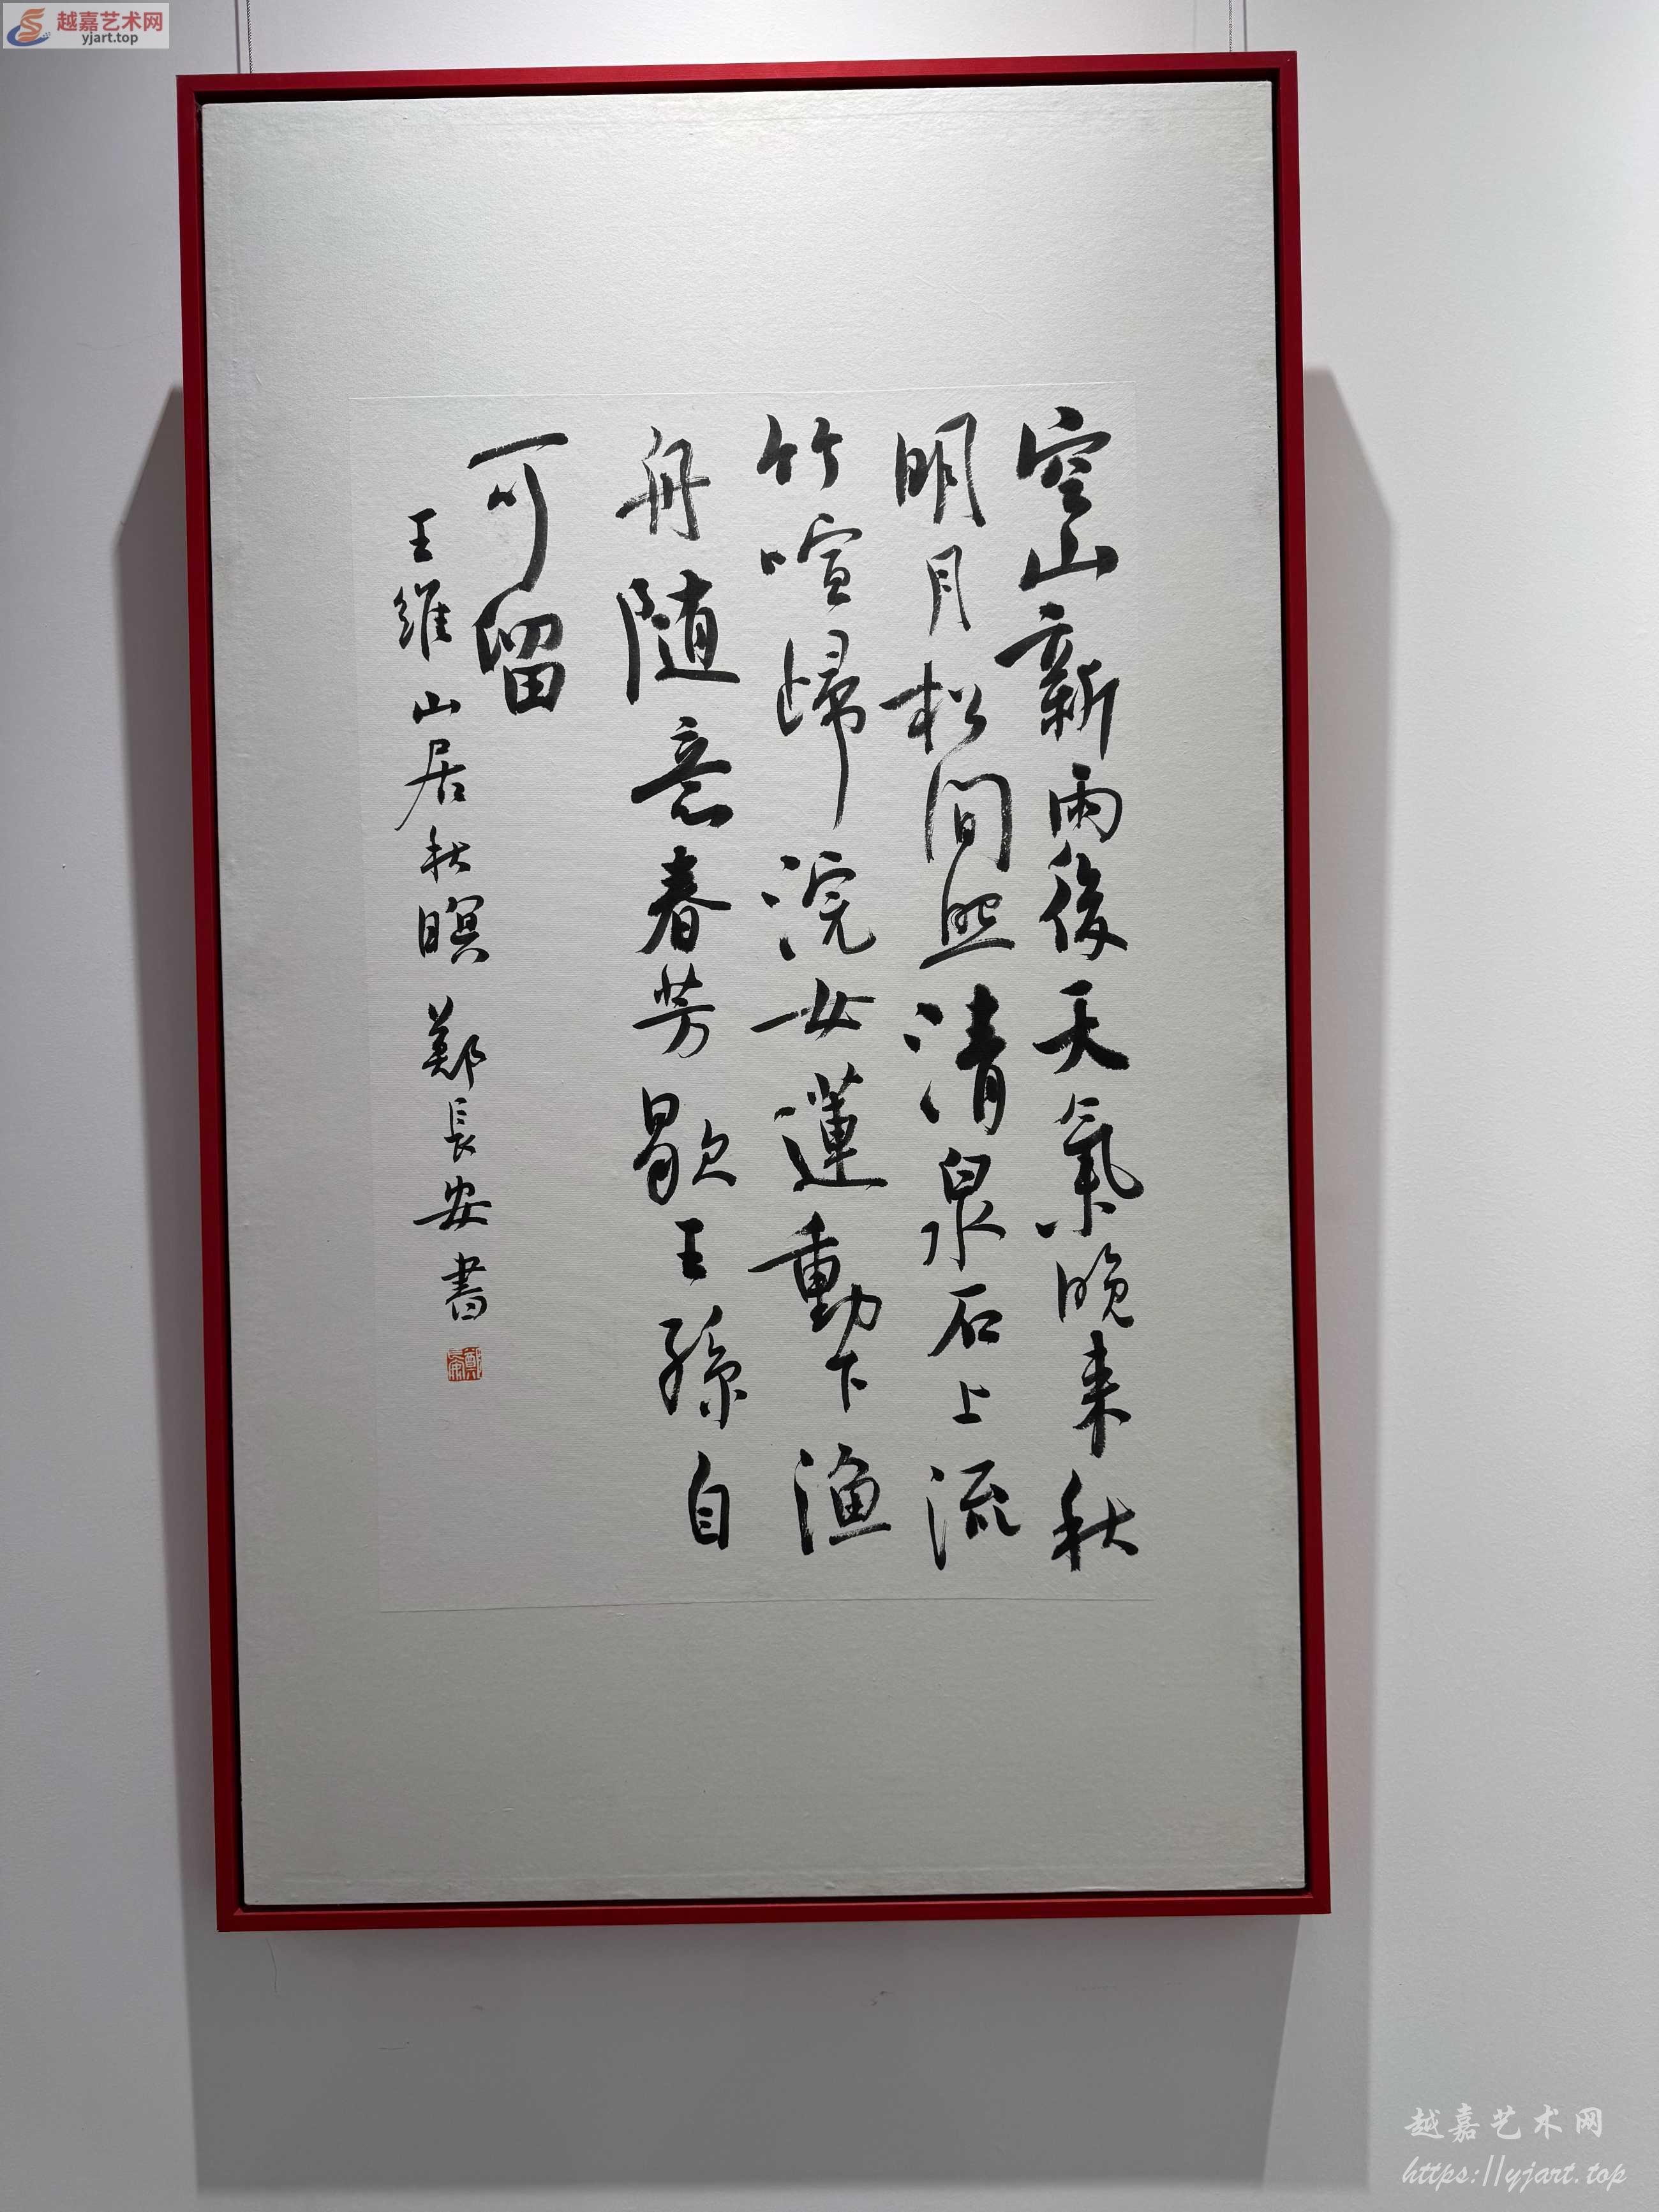 越嘉艺术网
yjart.top
空山新雨後天氣晚来秋
明月松間照清泉石上流
竹喧歸浣女蓮動下漁
舟随意春芳歇王孫自
可留
王維山居秋暝 鄭長安書
越嘉艺术网
https://yjart.top